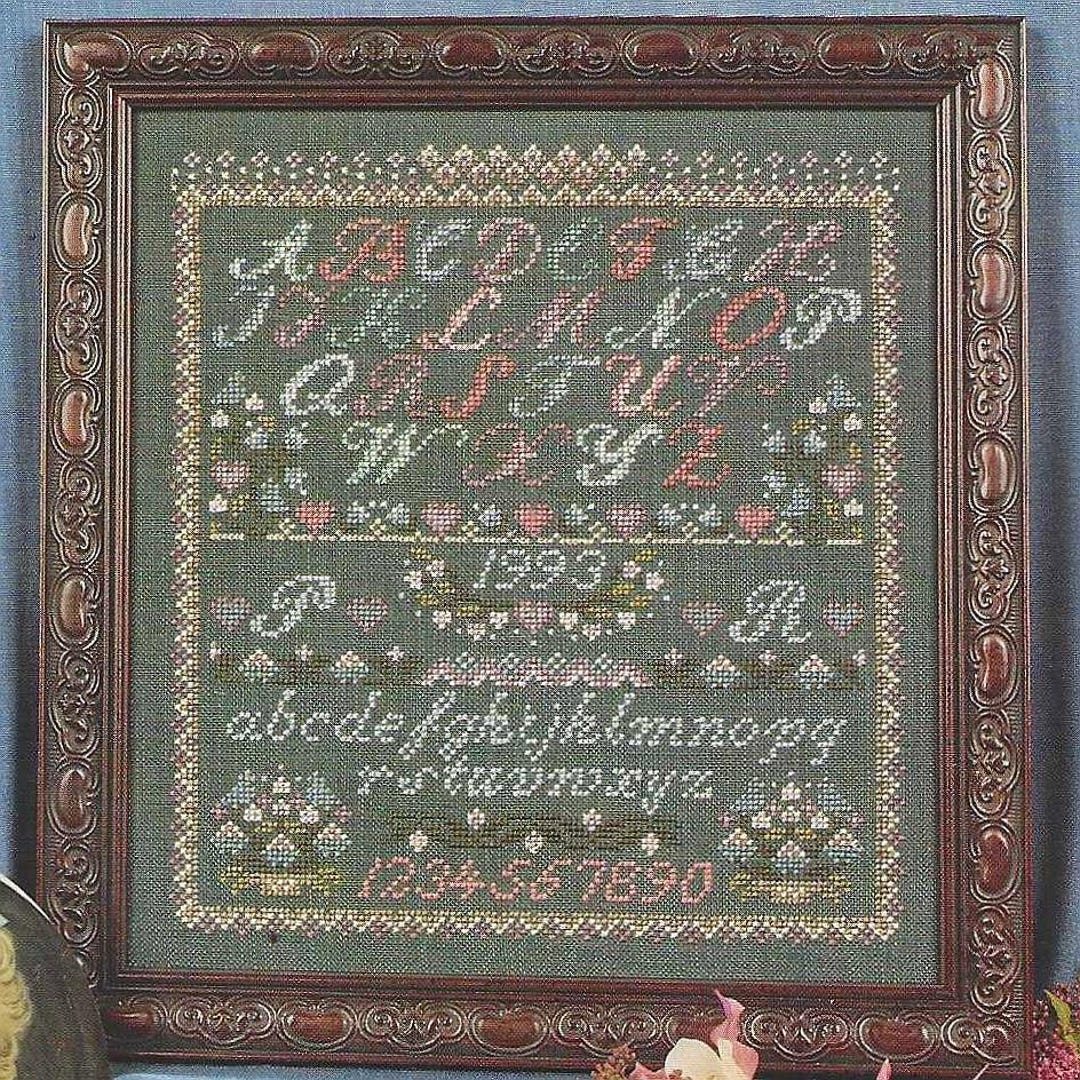 A B C D E F G H
I J K L M N O P
Q R S T U V
W X Y Z
1993
P R
abcdefghijklmnopq
rstuvwxyz
1234567890